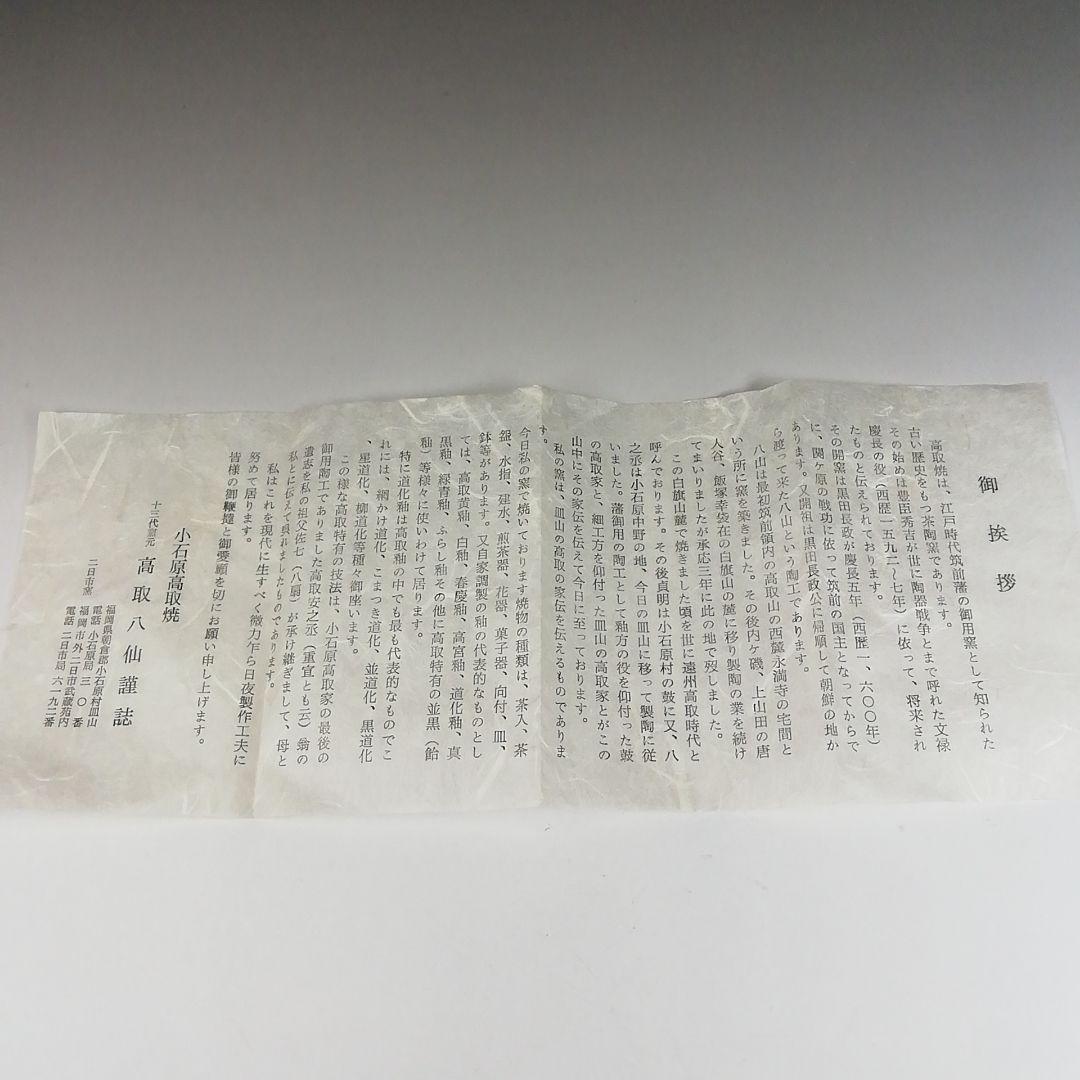 御挨拶
高取焼は、江戸時代筑前藩の御用窯として知られた
古い歴史をもつ茶陶窯であります。
その始めは豊臣秀吉が世に陶器戦争とまで呼れた文禄
慶長の役(西歴一五九二〜七年)に依って、将来され
たものと伝えられております。
その開窯は黒田長政が慶長五年(西歴一、六〇〇年)
に、関ヶ原の戦功に依って筑前の国主となってからで
あります。又開祖は黒田長政公に帰順して朝鮮の地か
ら渡って来た八山という陶工であります。
八山は最初筑前領内の高取山の西麓永満寺の宅間と
いう所に窯を築きました。その後内ヶ磯、上山田の唐
人谷、飯塚幸袋在の白旗山の麓に移り製陶の業を続け
てまいりましたが承応三年に此の地で歿しました。
この白旗山麓で焼きました頃を世に遠州高取時代と
呼んでおります。その後貞明は小石原村の鼓に又、八
之丞は小石原中野の地、今日の皿山に移って製陶に従
いました。藩御用の陶工として釉方の役を仰付った鼓
の高取家と、細工方を仰付った皿山の高取家とがこの
山中にその家伝を伝えて今日に至っております。
私の窯は、皿山の高取の家伝を伝えるものでありま
す。
今日私の窯で焼いております焼物の種類は、茶入、茶
盌、水指、建水、煎茶器、花器、菓子器、向付、皿、
鉢等があります。又自家調製の釉の代表的なものとし
ては、高取黄釉、白釉、春慶釉、高宮釉、道化釉、真
黒釉、緑青釉、ふらし釉その他に高取特有の並黒(飴
釉)等様々に使いわけて居ります。
特に道化釉は高取釉の中でも最も代表的なものでこ
れには、網かけ道化、こまつき道化、並道化、黒道化
、星道化、柳道化等種々御座います。
この様な高取特有の技法は、小石原高取家の最後の
御用陶工でありました高取安之丞(重宜とも云)翁の
遺志を私の祖父佐七(八扇)が承け継ぎまして、母と
私とに伝えて呉れましたものであります。
私はこれを現代に生すべく微力乍ら日夜製作工夫に
努めて居ります。
皆様の御鞭撻と御愛顧を切にお願い申し上げます。
小石原高取焼
十三代窯元 高取八仙謹誌
福岡県朝倉郡小石原村皿山
電話小石原局三〇番
二日市窯 福岡市外二日市武蔵苑内
電話二日市局六一九二番